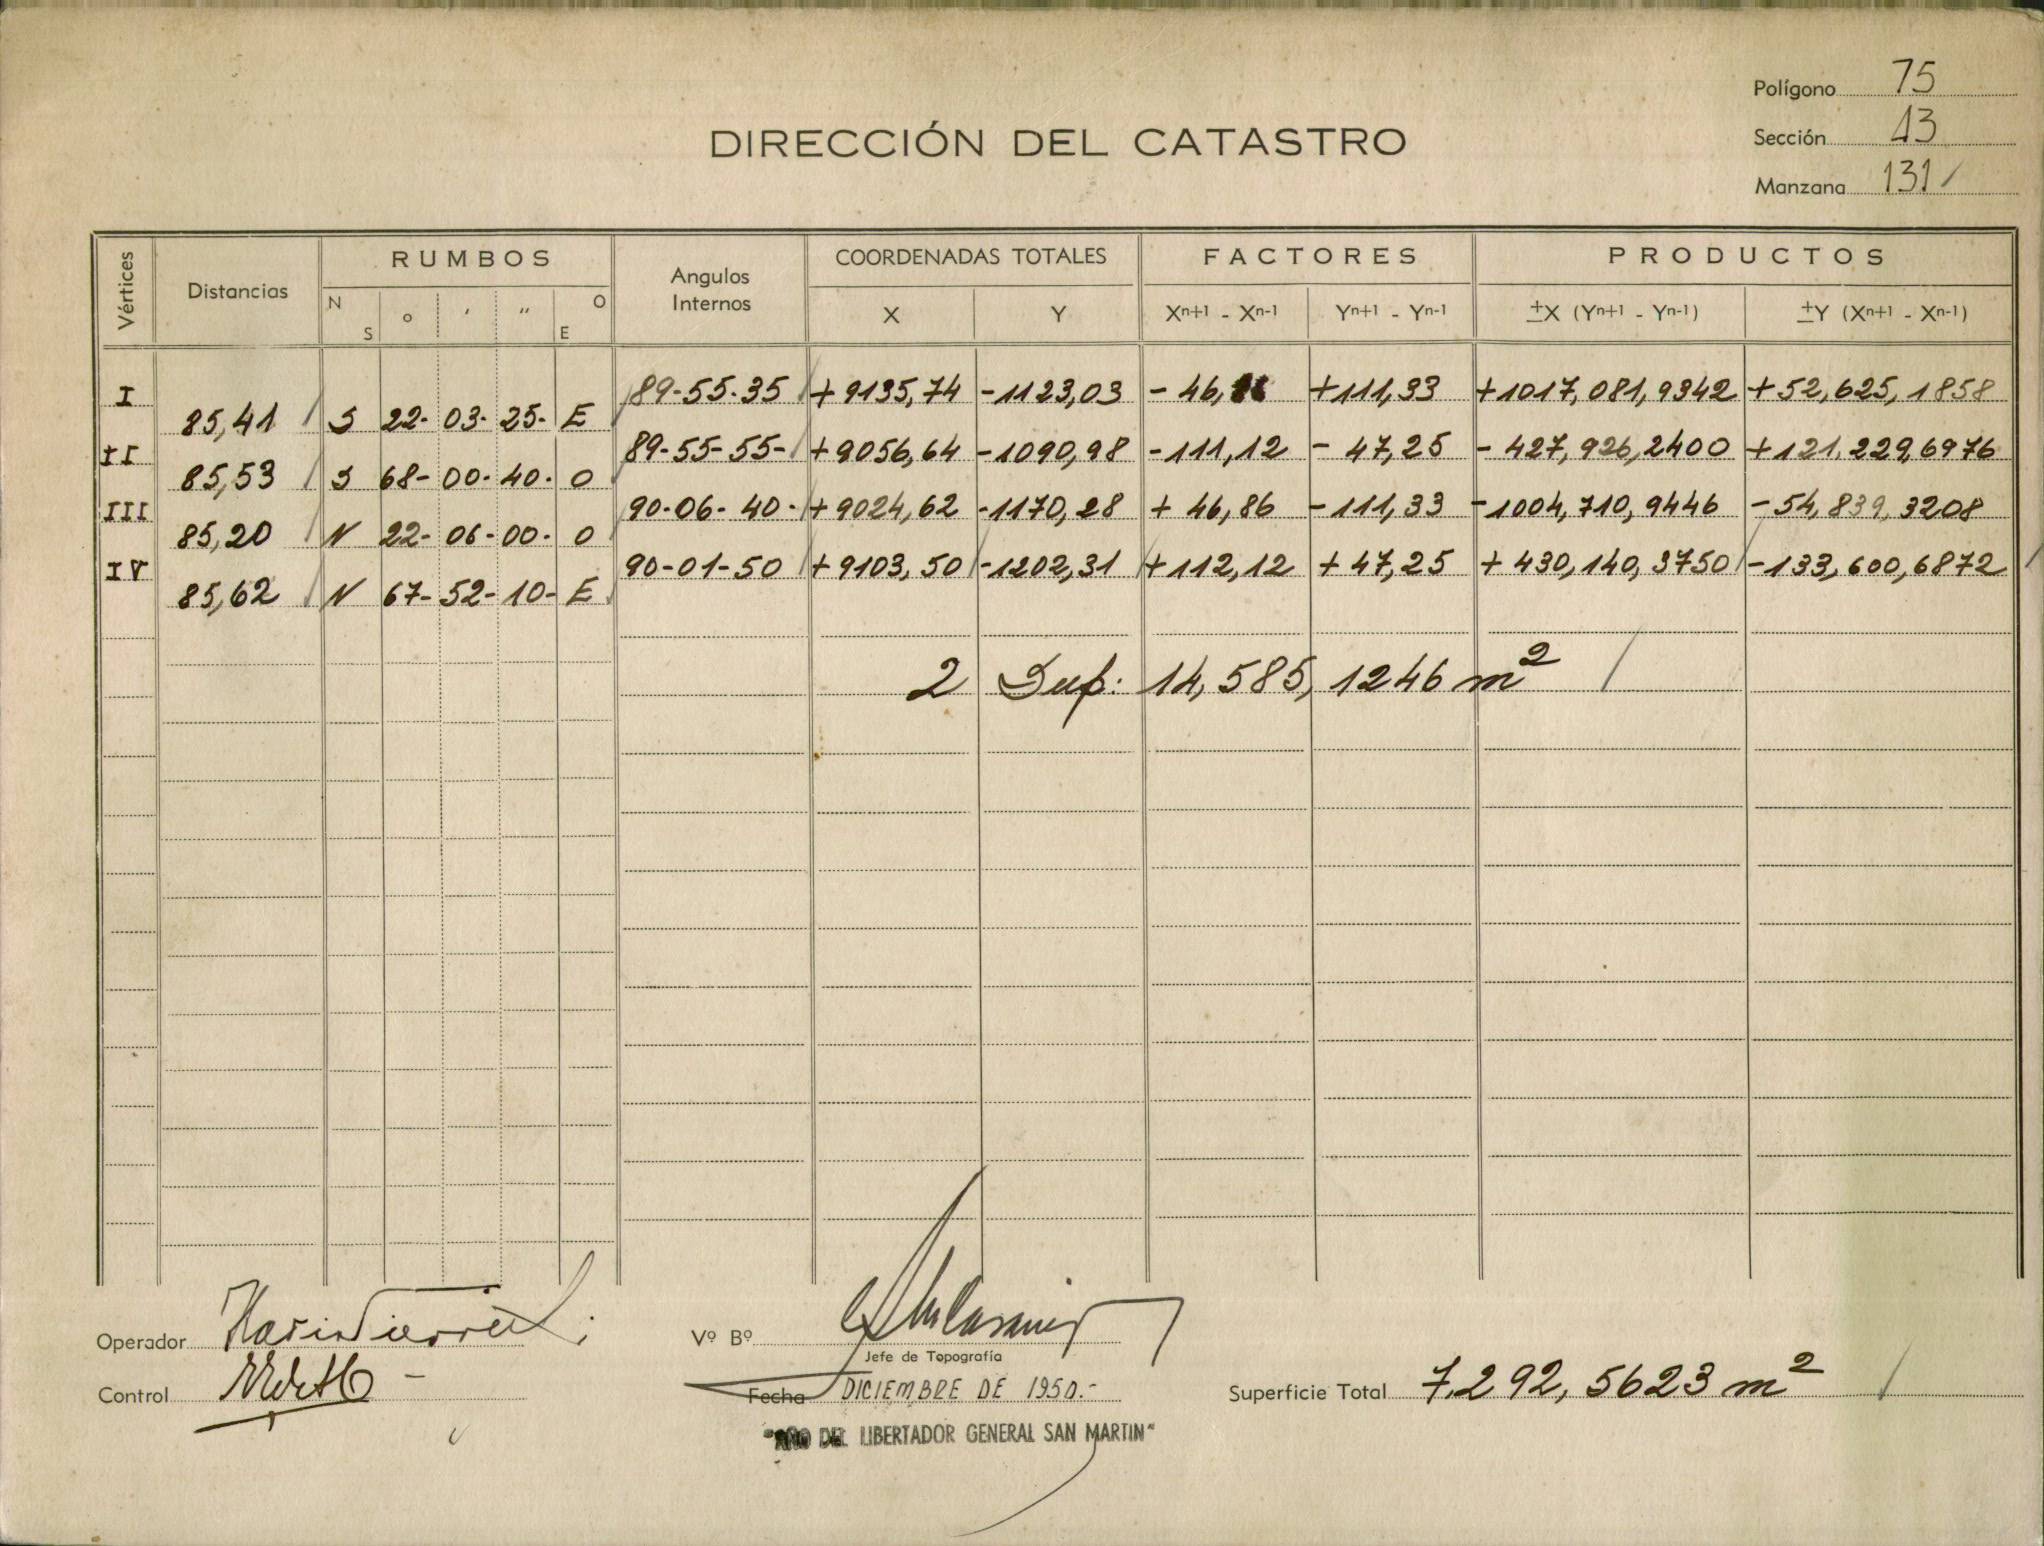 Polígono 75
DIRECCIÓN DEL CATASTRO
Sección 13
Manzana 131
Vértices Distancias RUMBOS Angulos Internos COORDENADAS TOTALES FACTORES PRODUCTOS
N S o ' " O E X Y Xn+1 - Xn-1 Yn+1 - Yn-1 ±X (Yn+1 - Yn-1) ±Y (Xn+1 - Xn-1)
I 89-55-35 +9135,74 -1123,03 -46, +111,33 +1017,081,9342 +52,625,1858
85,41 S 22-03-25-E
II 89-55-55- +9056,64 -1090,98 -111,12 -47,25 -427,926,2400 +121,229,6976
85,53 S 68-00-40-O
III 90-06-40- +9024,62 -1170,28 +46,86 -111,33 -1004,710,9446 -54,839,3208
85,20 N 22-06-00-O
IV 90-01-50 +9103,50 -1202,31 +112,12 +47,25 +430,140,3750 -133,600,6872
85,62 N 67-52-10-E
2 Sup: 14,585,1246 m²
Operador
Vº Bº
Jefe de Topografía
Control
Fecha DICIEMBRE DE 1950.-
Superficie Total 7,292,5623 m²
"AÑO DEL LIBERTADOR GENERAL SAN MARTIN"